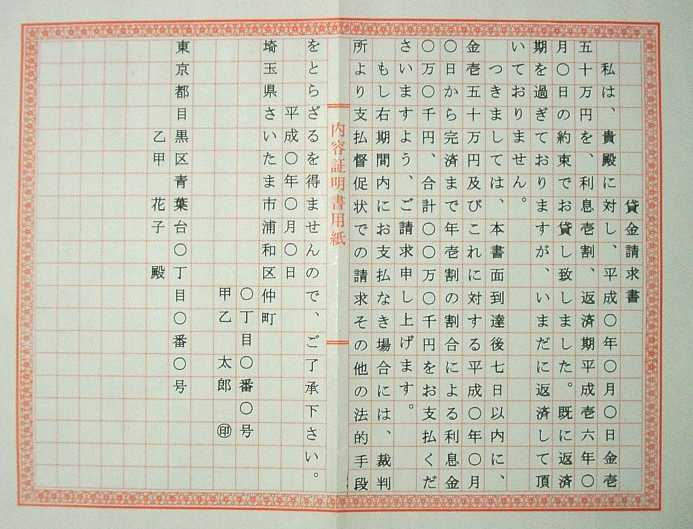 貸金請求書
私は、貴殿に対し、平成〇年〇月〇日金壱
五十万円を、利息壱割、返済期平成壱六年〇
月〇日の約束でお貸し致しました。既に返済
期を過ぎておりますが、いまだに返済して頂
いておりません。
つきましては、本書面到達後七日以内に、
金壱五十万円及びこれに対する平成〇年〇月
〇日から完済まで年壱割の割合による利息金
〇万〇千円、合計〇〇万〇千円をお支払くだ
さいますよう、ご請求申し上げます。
もし右期間内にお支払なき場合には、裁判
所より支払督促状での請求その他の法的手段
内容証明書用紙
をとらざるを得ませんので、ご了承下さい。
平成〇年〇月〇日
埼玉県さいたま市浦和区仲町
〇丁目〇番〇号
甲乙 太郎 ㊞
東京都目黒区青葉台〇丁目〇番〇号
乙甲 花子 殿